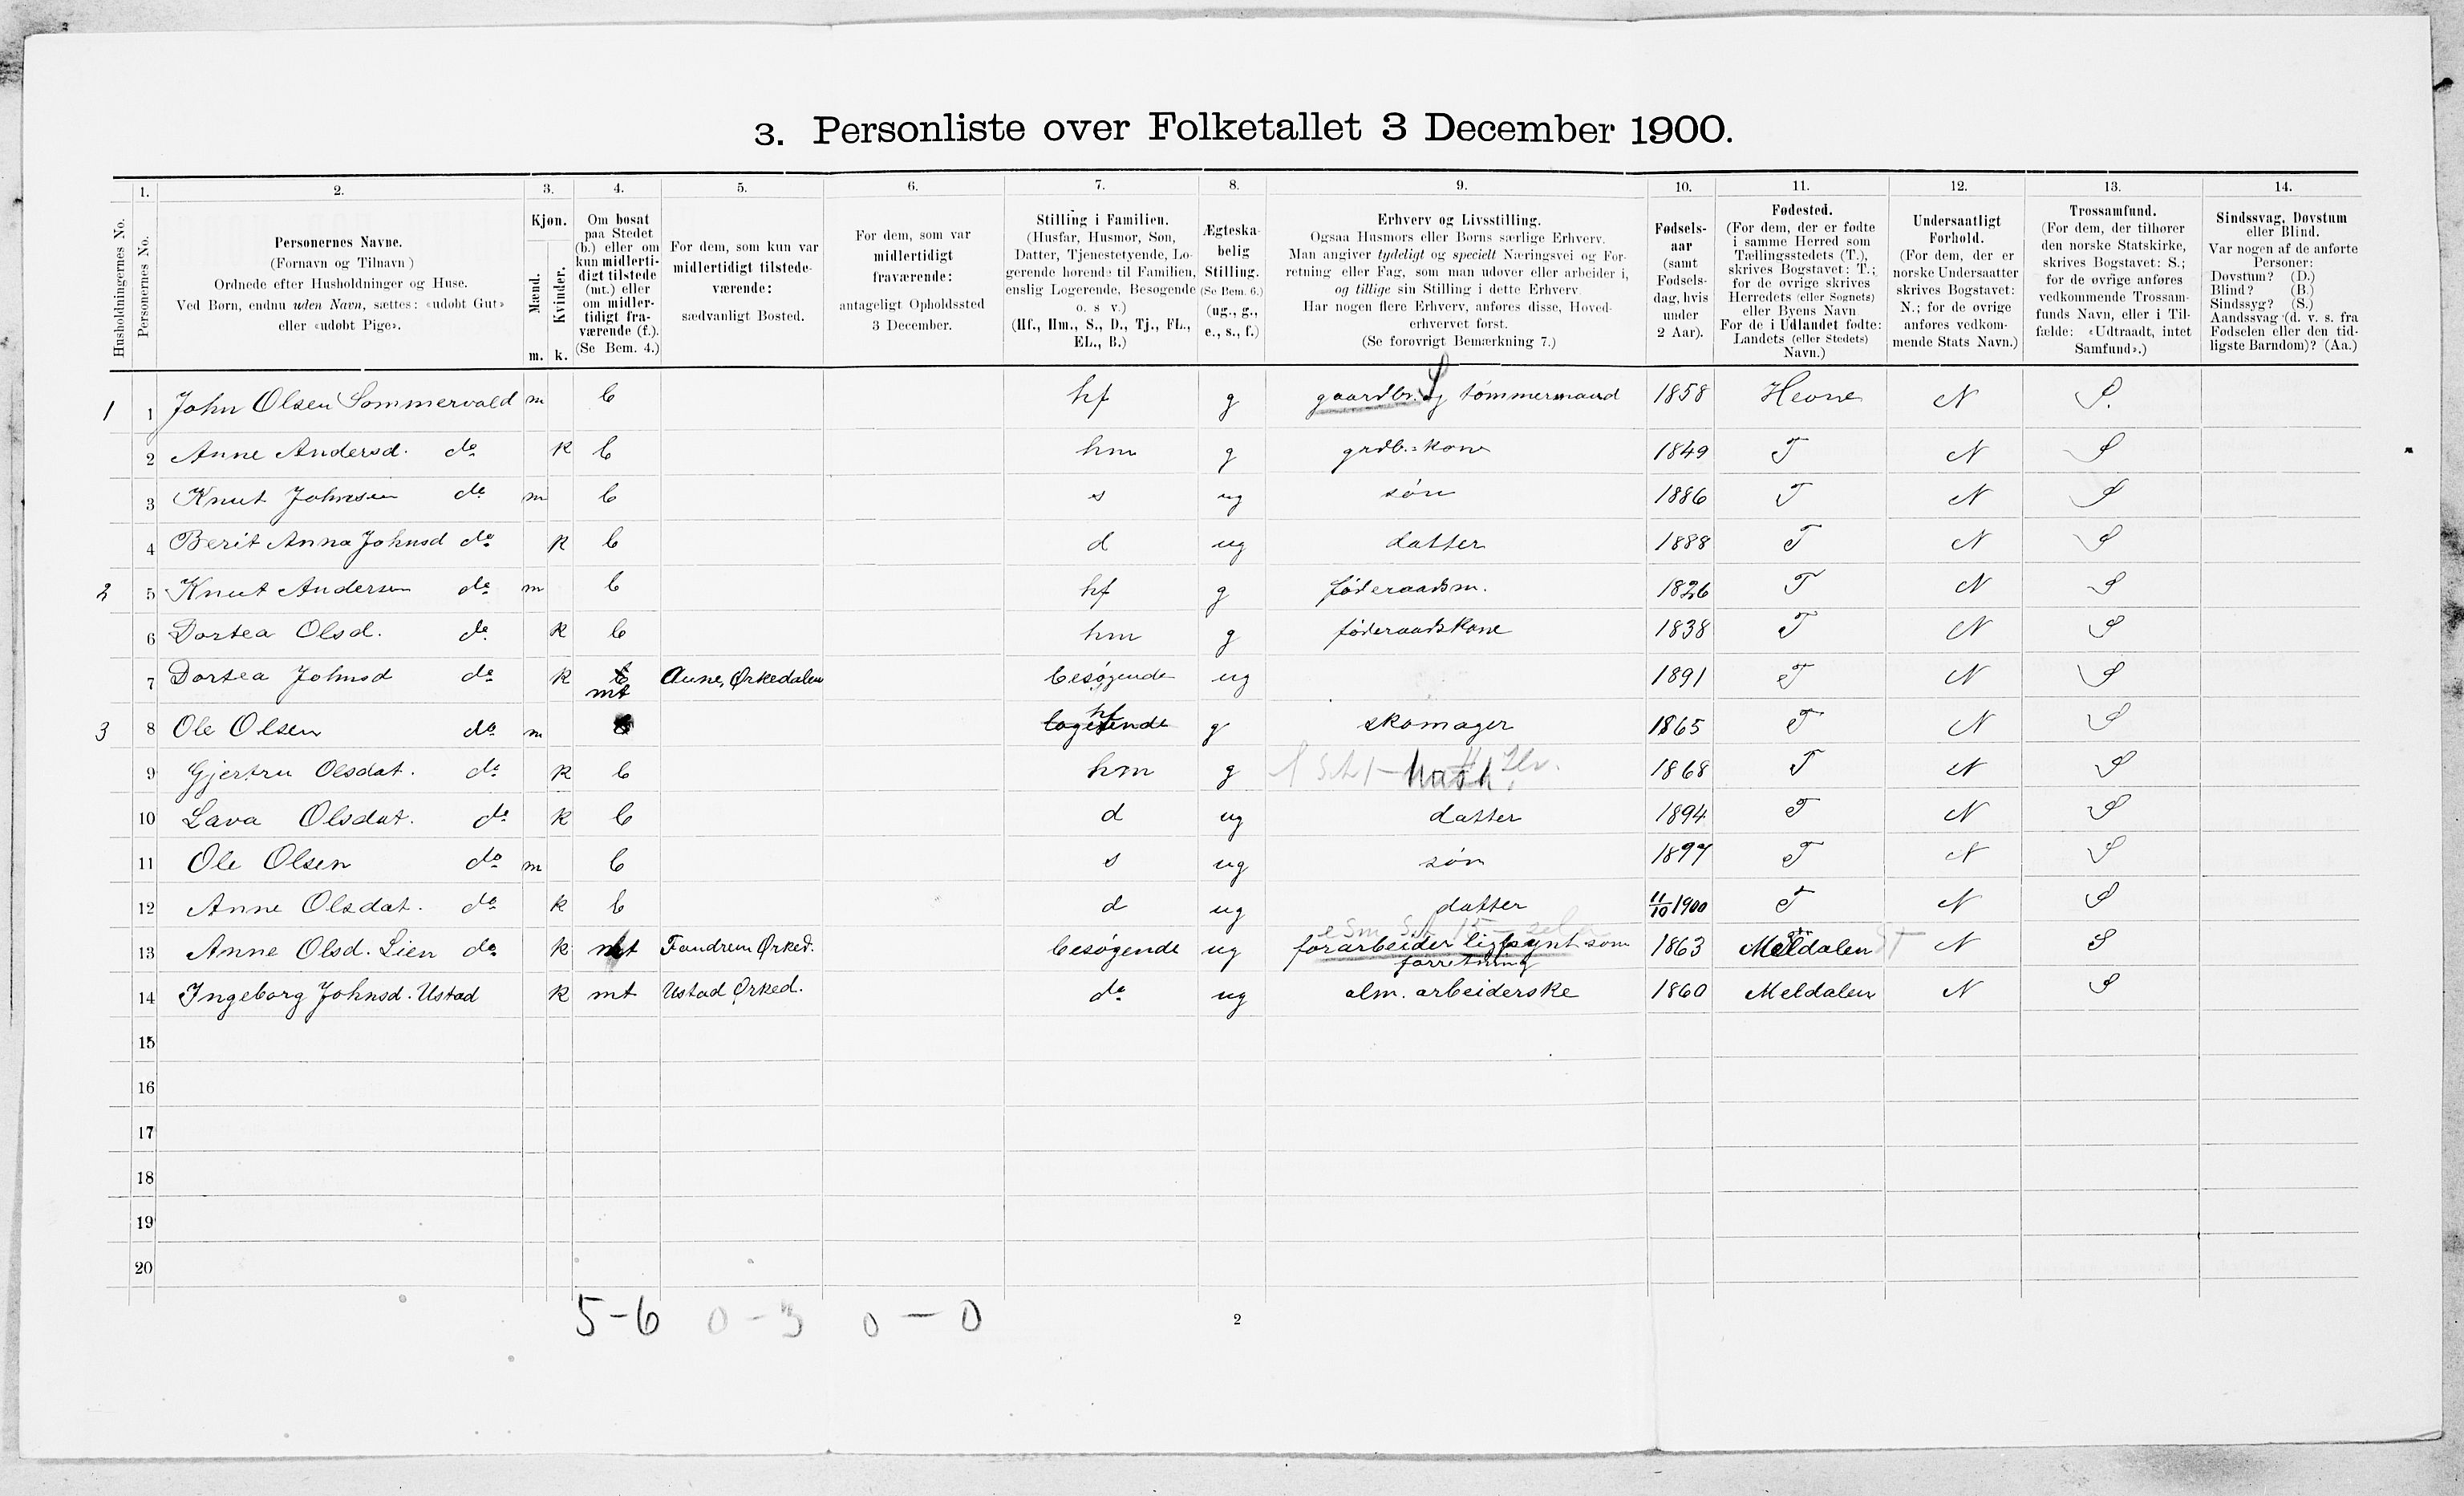 3. Personliste over Folketallet 3 December 1900.
1. 2. 3. 4. 5. 6. 7. 8. 9. 10. 11. 12. 13. 14.
Husholdningernes No.
Personernes No.
Personernes Navne.
(Fornavn og Tilnavn)
Ordnede efter Husholdninger og Huse.
Ved Børn, endnu uden Navn, sættes: «udøbt Gut»
eller «udøbt Pige».
Kjøn.
Mænd.
Kvinder.
m. k.
Om bosat
paa Stedet
(b.) eller om
kun midlerti-
digt tilstede
(mt.) eller
om midler-
tidigt fra-
værende (f.).
(Se Bem. 4.)
For dem, som kun var
midlertidigt tilstede-
værende:
sædvanligt Bosted.
For dem, som var
midlertidigt
fraværende:
antageligt Opholdssted
3 December.
Stilling i Familien.
(Husfar, Husmor, Søn,
Datter, Tjenestetyende, Lo-
gerende hørende til Familien,
enslig Logerende, Besøgende
o. s v.)
(Hf., Hm., S., D., Tj., FL.,
EL., B.)
Ægteska-
belig
Stilling.
(Se Bem. 6.)
(ug., g.,
e., s., f.)
Erhverv og Livsstilling.
Ogsaa Husmors eller Børns særlige Erhverv.
Man angiver tydeligt og specielt Næringsvei og For-
retning eller Fag, som man udøver eller arbeider i,
og tillige sin Stilling i dette Erhverv
Har nogen flere Erhverv, anføres disse, Hoved-
erhvervet først.
(Se forøvrigt Bemærkning 7.)
Fødsels-
aar
(samt
Fødsels-
dag, hvis
under
2 Aar).
Fødested.
(For dem, der er fødte
i samme Herred som
Tællingsstedets (T.),
skrives Bogstavet: T.;
for de øvrige skrives
Herredets (eller Sognets)
eller Byens Navn
For de i Udlandet fødte:
Landets (eller Stedets)
Navn.)
Undersaatligt
Forhold.
(For dem, der er
norske Undersaatter
skrives Bogstavet:
N.; for de øvrige
anføres vedkom-
mende Stats Navn.)
Trossamfund.
(For dem, der tilhører
den norske Statskirke,
skrives Bogstavet: S.;
for de øvrige anføres
vedkommende Trossam-
funds Navn, eller i Til-
fælde: «Udtraadt, intet
Samfund».)
Sindssvag, Døvstum
eller Blind.
Var nogen af de anførte
Personer:
Døvstum? (D.)
Blind? (B.)
Sindssyg? (S.)
Aandssvag (d. v. s. fra
Fødselen eller den tid-
ligste Barndom)? (Aa.)
1 1 John Olsen Sommervold m b hf g gaardbr. S tømmermand 1858 Hevne N S.
2 Anne Andersd. do k b hm g grdb.:kone 1849 T N S
3 Knut Johnsen do m b s ug søn 1886 T N S
4 Berit Anna Johnsd do k b d ug datter 1888 T N S
2 5 Knut Andersen do m b hf g føderaadsm. 1826 T N S
6 Dortea Olsd. do k b hm g føderaadskone 1838 T N S
7 Dortea Johnsd do k b mt Aune, Ørkedalen besøgende ug 1891 T N S
3 8 Ole Olsen do m b logerende hf g skomager 1865 T N S
9 Gjertru Olsdat. do k b hm g 1868 T N S
10 Lava Olsdat. do k b d ug datter 1894 T N S
11 Ole Olsen do m b s ug søn 1897 T N S
12 Anne Olsdat. do k b d ug datter 11/10 1900 T N S
13 Anne Olsd. Lien do k mt Fandrem Ørked. besøgende ug forarbeider ligpynt som forretning 1863 Meldalen N S
14 Ingeborg Johnsd. Ustad k mt Ustad Ørked. do ug alm. arbeiderske 1860 Meldalen N S
15
16
17
18
19
20
5-6 0-3 0-0
2